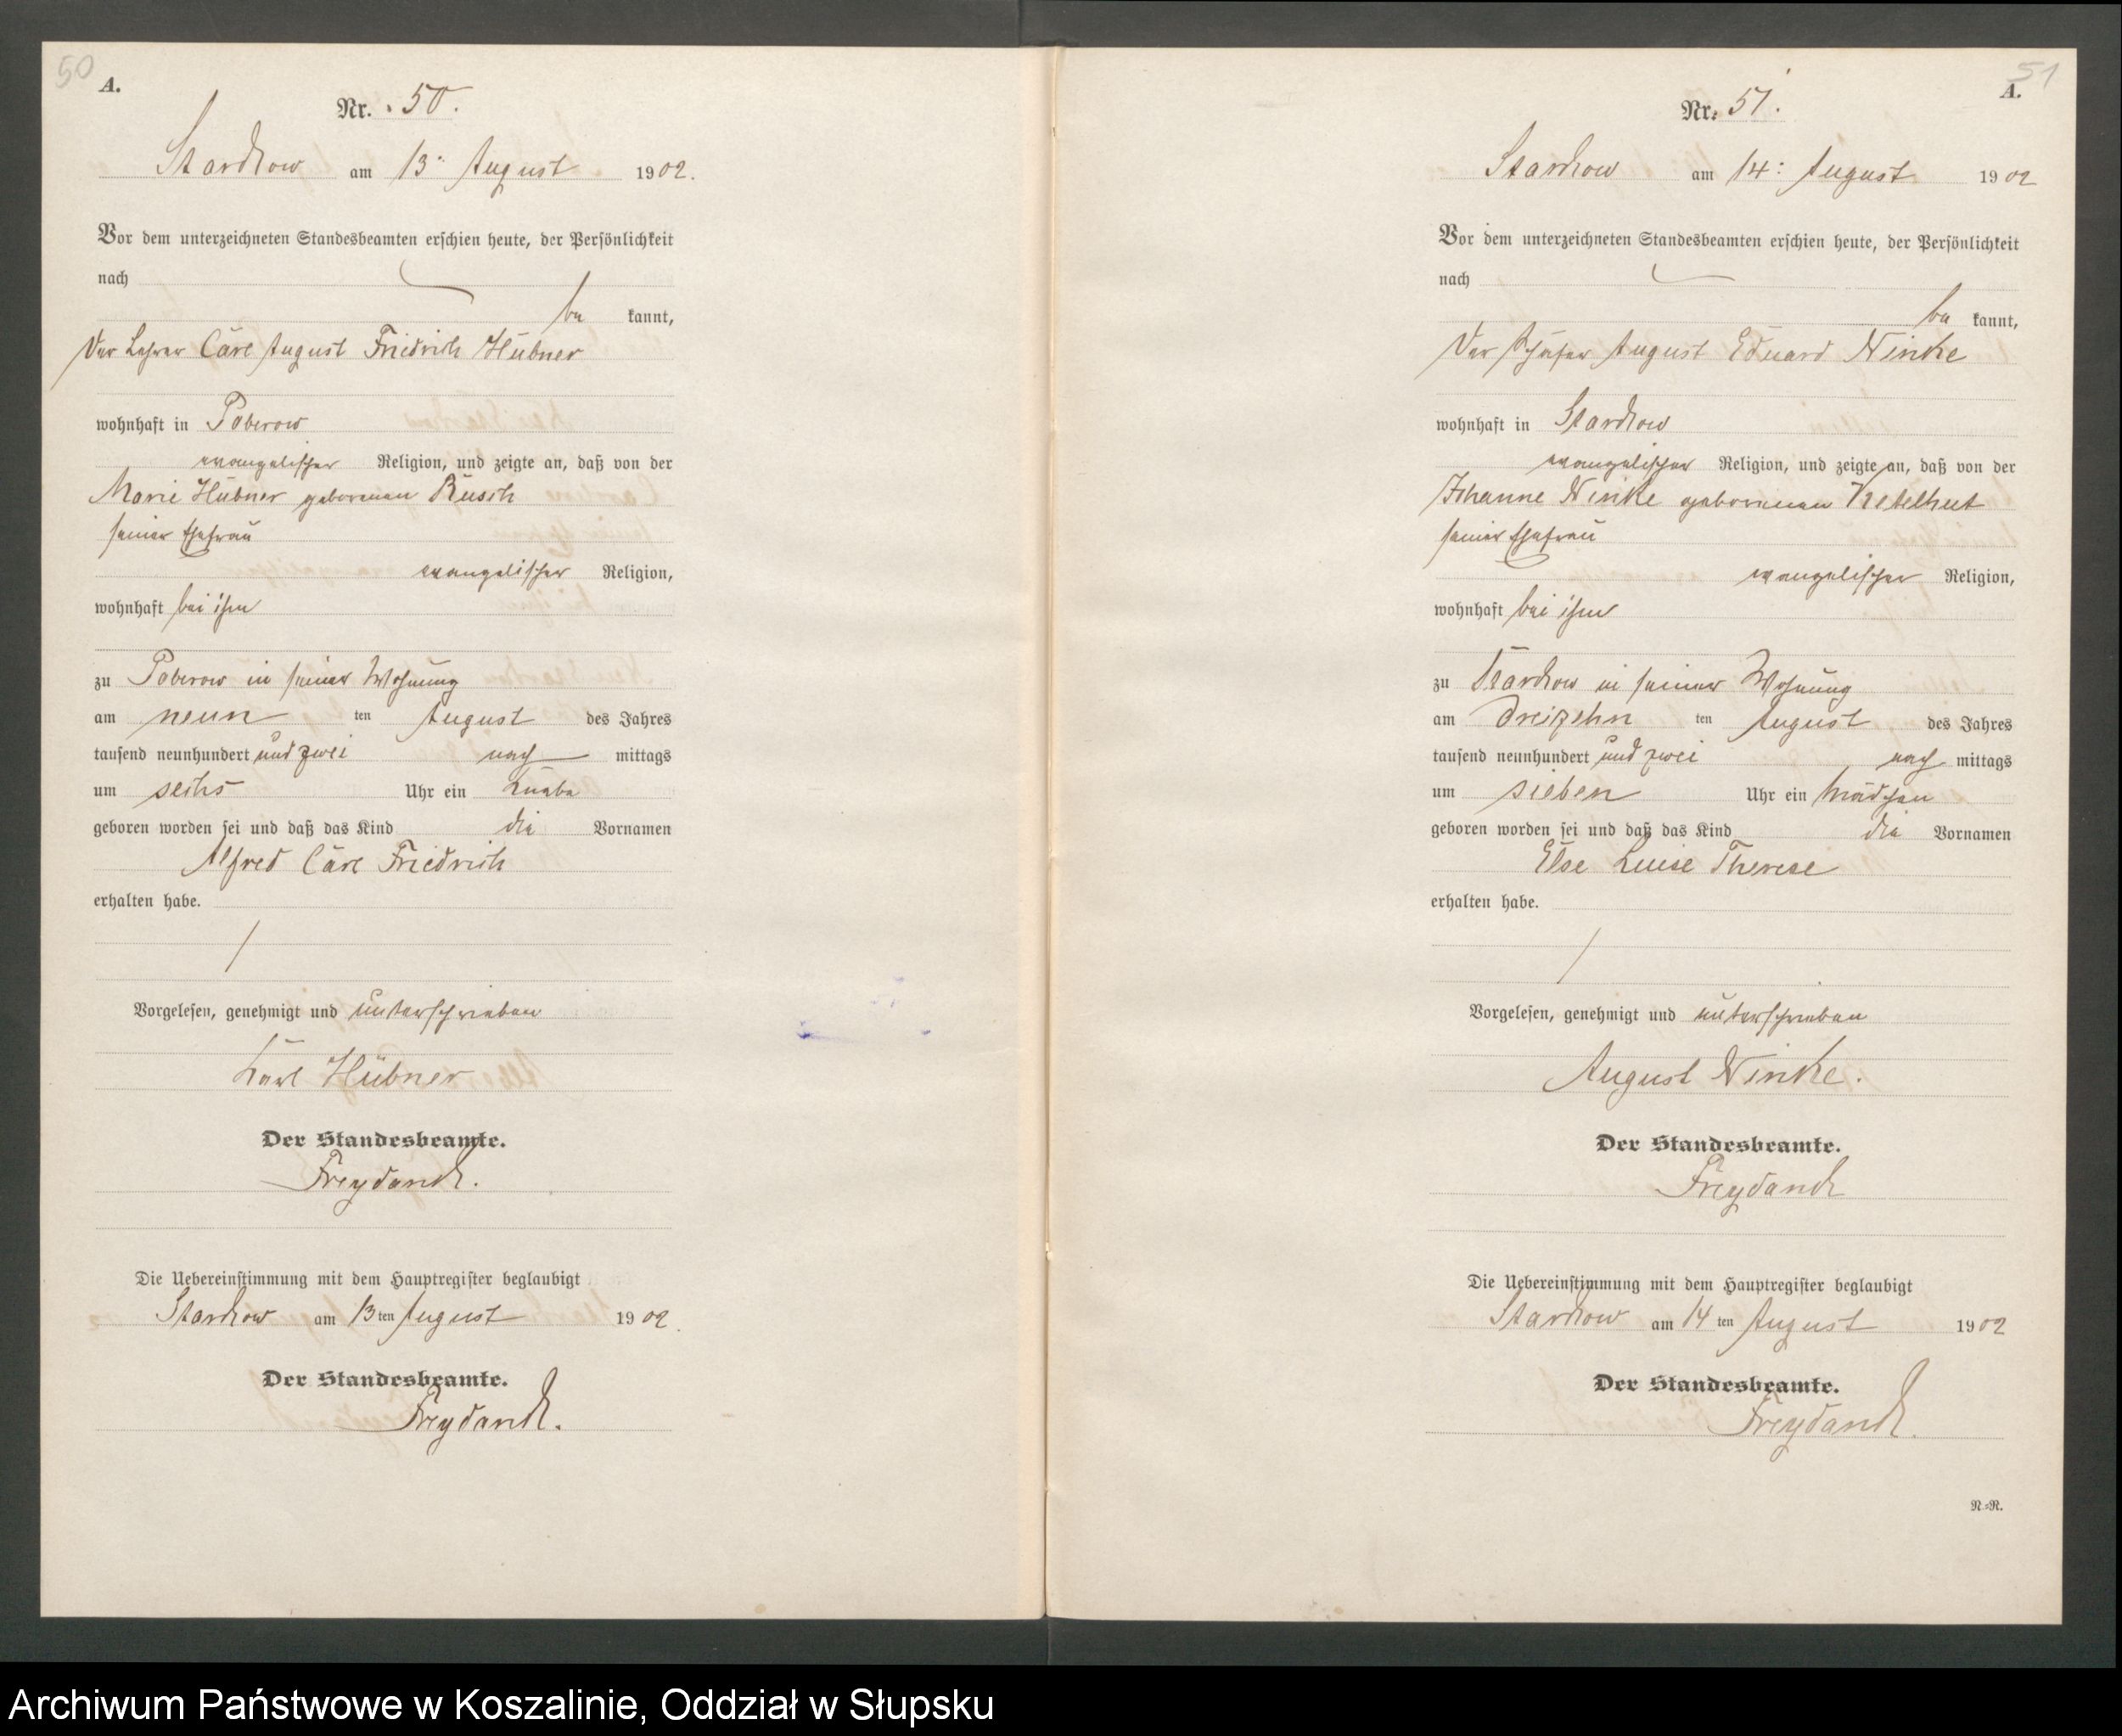 50
A.
Nr. 50.
Starckow am 13. August 1902.
Vor dem unterzeichneten Standesbeamten erschien heute, der Persönlichkeit
nach
be kannt,
Der Lehrer Carl August Friedrich Hübner
wohnhaft in Poberow
evangelischer Religion, und zeigte an, daß von der
Marie Hübner geborenen Rusch
seiner Ehefrau
evangelischer Religion,
wohnhaft bei ihm
zu Poberow in seiner Wohnung
am neun ten August des Jahres
tausend neunhundert und zwei nach mittags
um sechs Uhr ein Knabe
geboren worden sei und daß das Kind die Vornamen
Alfred Carl Friedrich
erhalten habe.
Vorgelesen, genehmigt und unterschrieben
Karl Hübner
Der Standesbeamte.
Freydanck.
Die Uebereinstimmung mit dem Hauptregister beglaubigt
Starckow am 13 ten August 1902.
Der Standesbeamte.
Freydanck.
51
A.
Nr. 51.
Starckow am 14. August 1902
Vor dem unterzeichneten Standesbeamten erschien heute, der Persönlichkeit
nach
be kannt,
Der Schäfer August Eduard Ninke
wohnhaft in Starckow
evangelischer Religion, und zeigte an, daß von der
Johanne Ninke geborenen Ketelhut
seiner Ehefrau
evangelischer Religion,
wohnhaft bei ihm
zu Starckow in seiner Wohnung
am dreizehn ten August des Jahres
tausend neunhundert und zwei nach mittags
um sieben Uhr ein Mädchen
geboren worden sei und daß das Kind die Vornamen
Else Luise Therese
erhalten habe.
Vorgelesen, genehmigt und unterschrieben
August Ninke.
Der Standesbeamte.
Freydanck
Die Uebereinstimmung mit dem Hauptregister beglaubigt
Starckow am 14 ten August 1902
Der Standesbeamte.
Freydanck.
N.=R.
Archiwum Państwowe w Koszalinie, Oddział w Słupsku